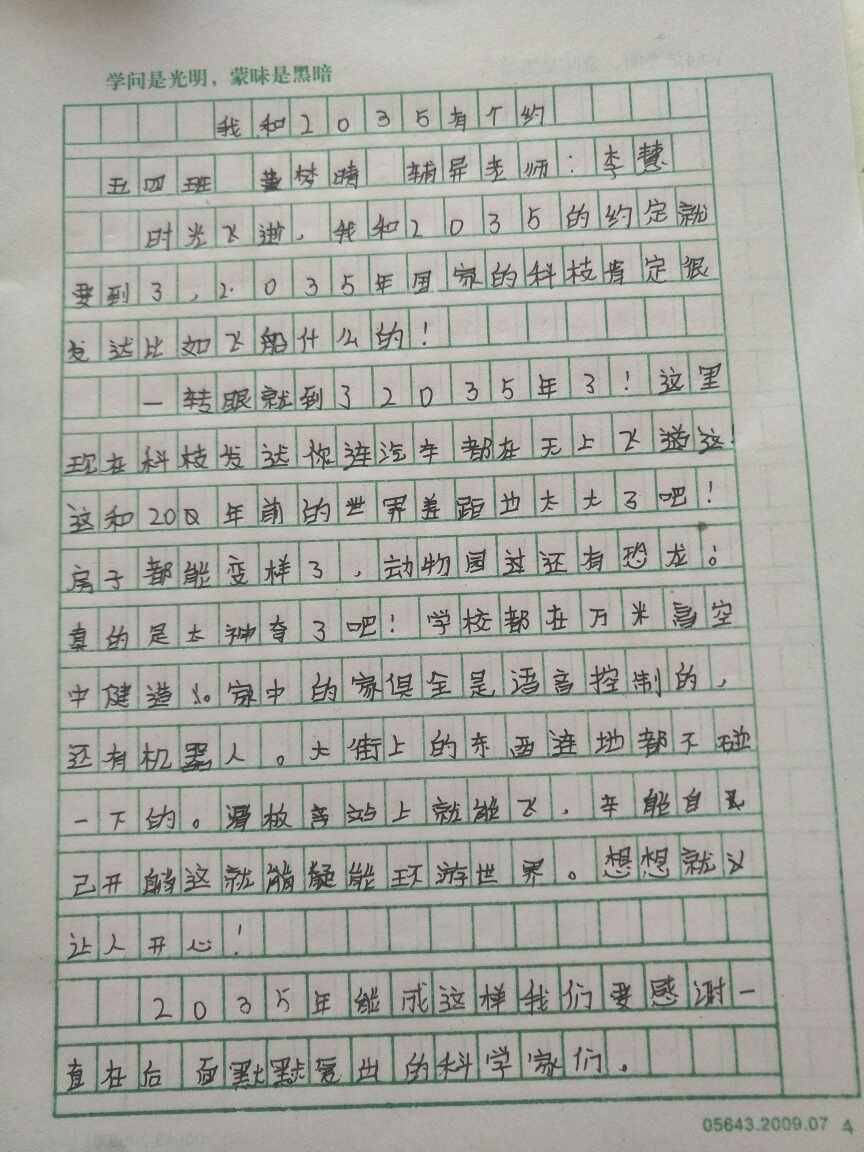 学问是光明，蒙昧是黑暗
我和2035有个约
五四班 黄梦晴 辅异老师：李慧
时光飞逝，我和2035的约定就
要到3，2035年国家的科技肯定很
发达比如飞船什么的！
一转眼就到了2035年3！这里
现在科技发达你连汽车都在无上飞
这和200年前的世界差距也太大了吧！
房子都能变样了，动物园过还有恐龙。
真的是太神奇了吧！学校都在万米高空
中健造 。家中的家俱全是语音控制的，
还有机器人。大街上的东西连地都不碰
一下的。滑板 站上就能飞，车能自
己开 这就能 能环游世界。想想就
让人开心！
2035年能成这样我们要感谢一
直在后面默默 出的科学家们。
05643.2009.07 4